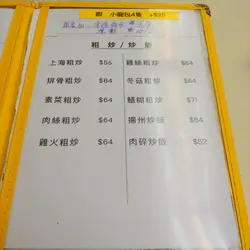 跟 小籠包4隻 +$25
粗炒/炒飯
上海粗炒 $56 雞絲粗炒 $64
排骨粗炒 $64 冬菇粗炒 $64
素菜粗炒 $64 鱔糊粗炒 $71
肉絲粗炒 $64 揚州炒飯 $64
雞火粗炒 $64 肉碎炒飯 $52